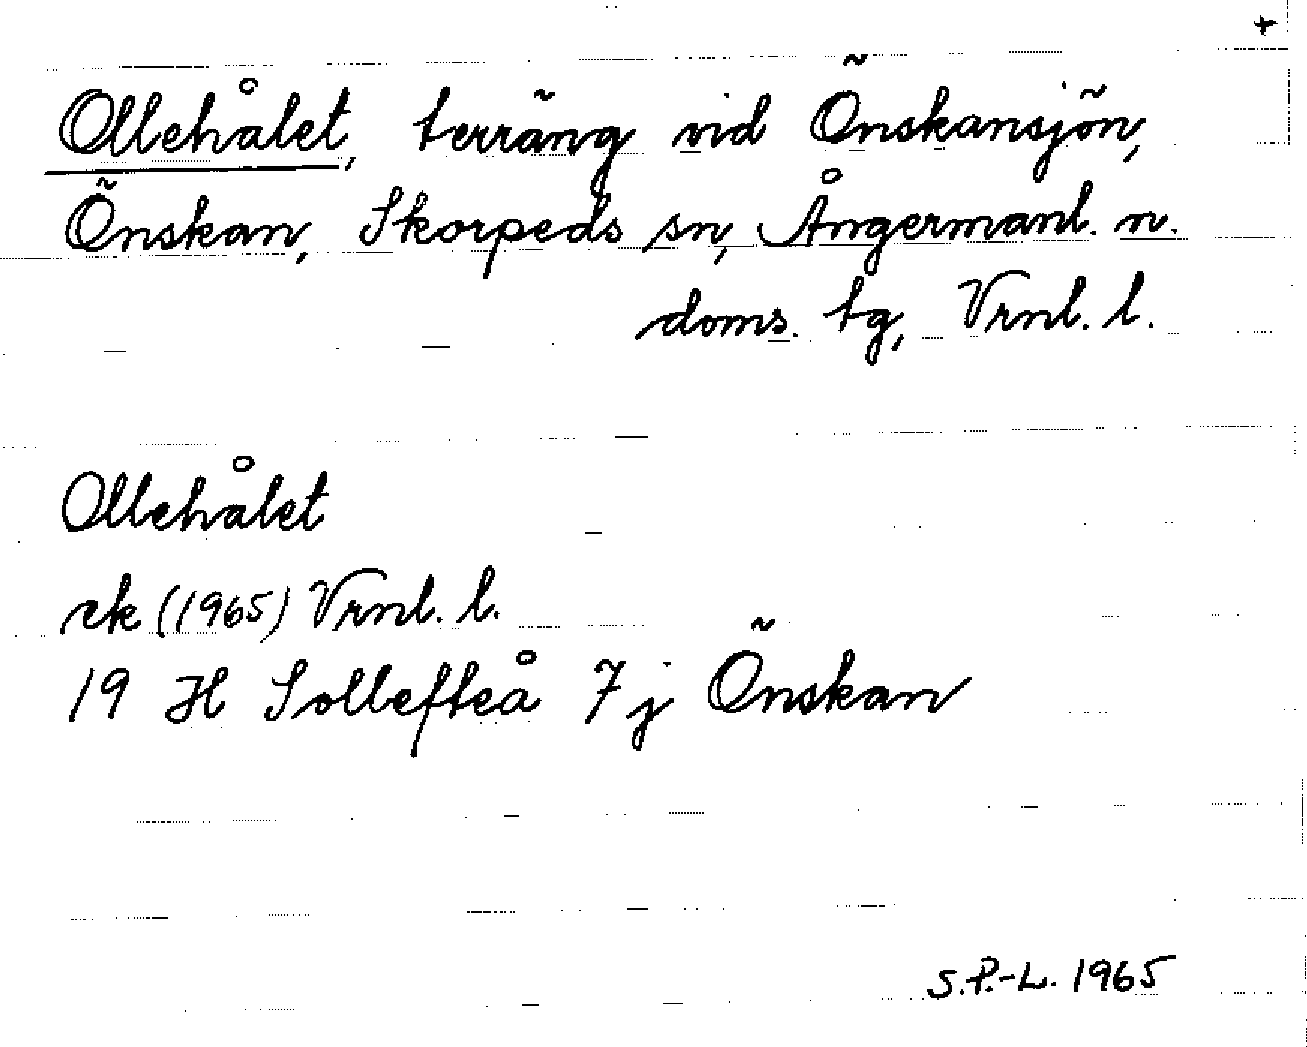 +
Ollehålet, terräng vid Önskansjön,
Önskan, Skorpeds sn, Ångermanl. n.
doms. tg, Vrnl. l.
Ollehålet
rk (1965) Vrnl. l.
19 H Sollefteå 7 j Önskan
S.P.-L. 1965